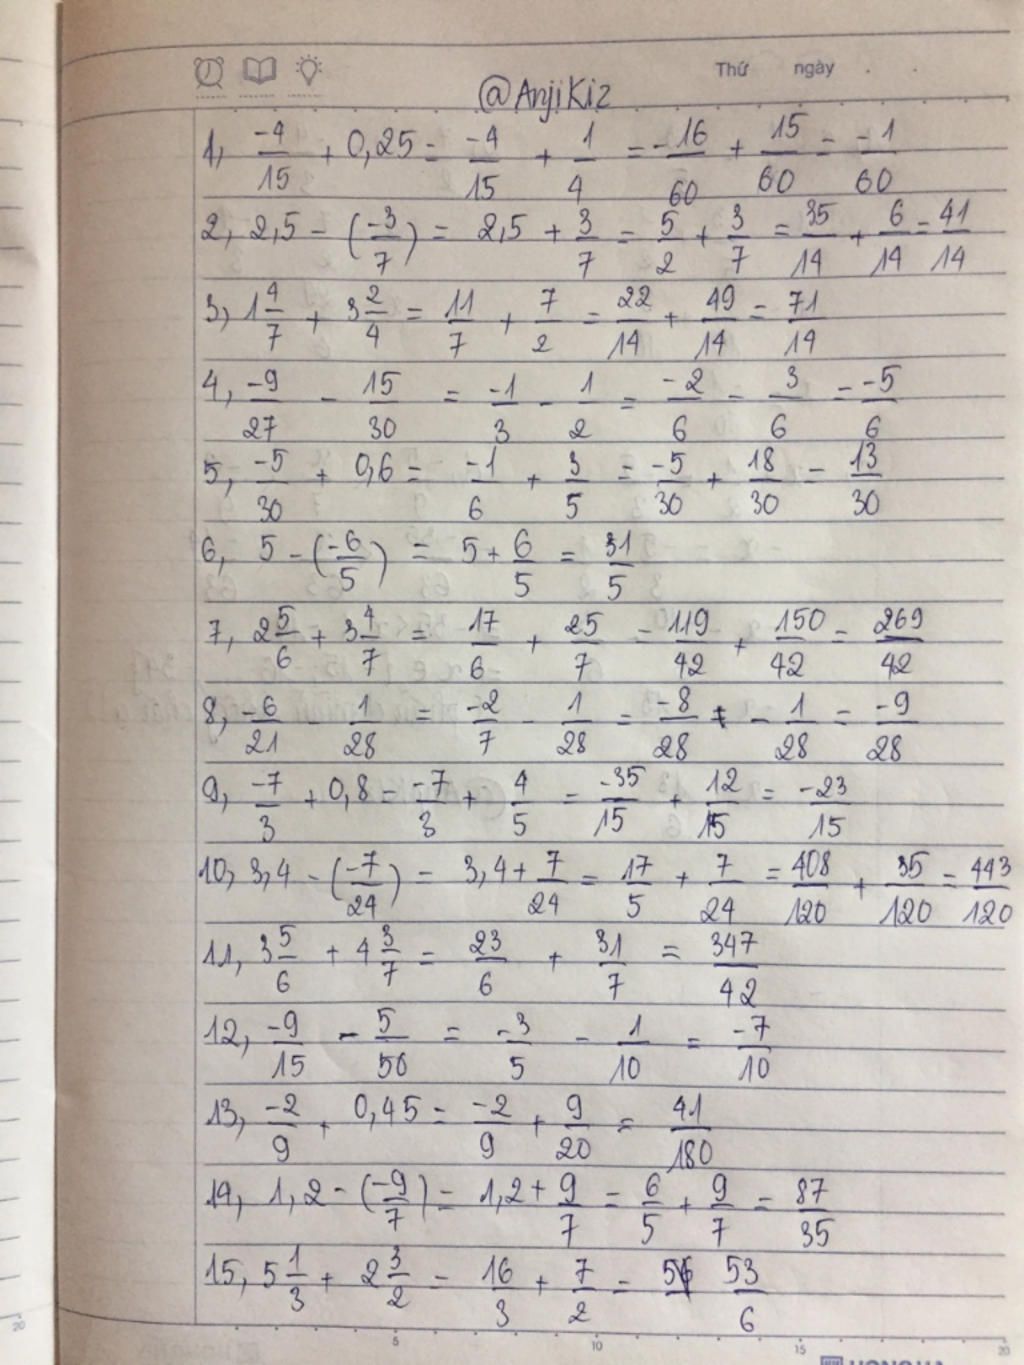 Thứ ngày
@AnjiKiz
1, -4/15 + 0,25 = -4/15 + 1/4 = -16/60 + 15/60 = -1/60
2, 2,5 - (-3/7) = 2,5 + 3/7 = 5/2 + 3/7 = 35/14 + 6/14 = 41/14
3, 1 4/7 + 3 2/4 = 11/7 + 7/2 = 22/14 + 49/14 = 71/14
4, -9/27 - 15/30 = -1/3 - 1/2 = -2/6 - 3/6 = -5/6
5, -5/30 + 0,6 = -1/6 + 3/5 = -5/30 + 18/30 = 13/30
6, 5 - (-6/5) = 5 + 6/5 = 31/5
7, 2 5/6 + 3 4/7 = 17/6 + 25/7 = 119/42 + 150/42 = 269/42
8, -6/21 - 1/28 = -2/7 - 1/28 = -8/28 - 1/28 = -9/28
9, -7/3 + 0,8 = -7/3 + 4/5 = -35/15 + 12/15 = -23/15
10, 3,4 - (-7/24) = 3,4 + 7/24 = 17/5 + 7/24 = 408/120 + 35/120 = 443/120
11, 3 5/6 + 4 3/7 = 23/6 + 31/7 = 347/42
12, -9/15 - 5/50 = -3/5 - 1/10 = -7/10
13, -2/9 + 0,45 = -2/9 + 9/20 = 41/180
14, 1,2 - (-9/7) = 1,2 + 9/7 = 6/5 + 9/7 = 87/35
15, 5 1/3 + 2 3/2 = 16/3 + 7/2 = 53/6
5 10 15 20